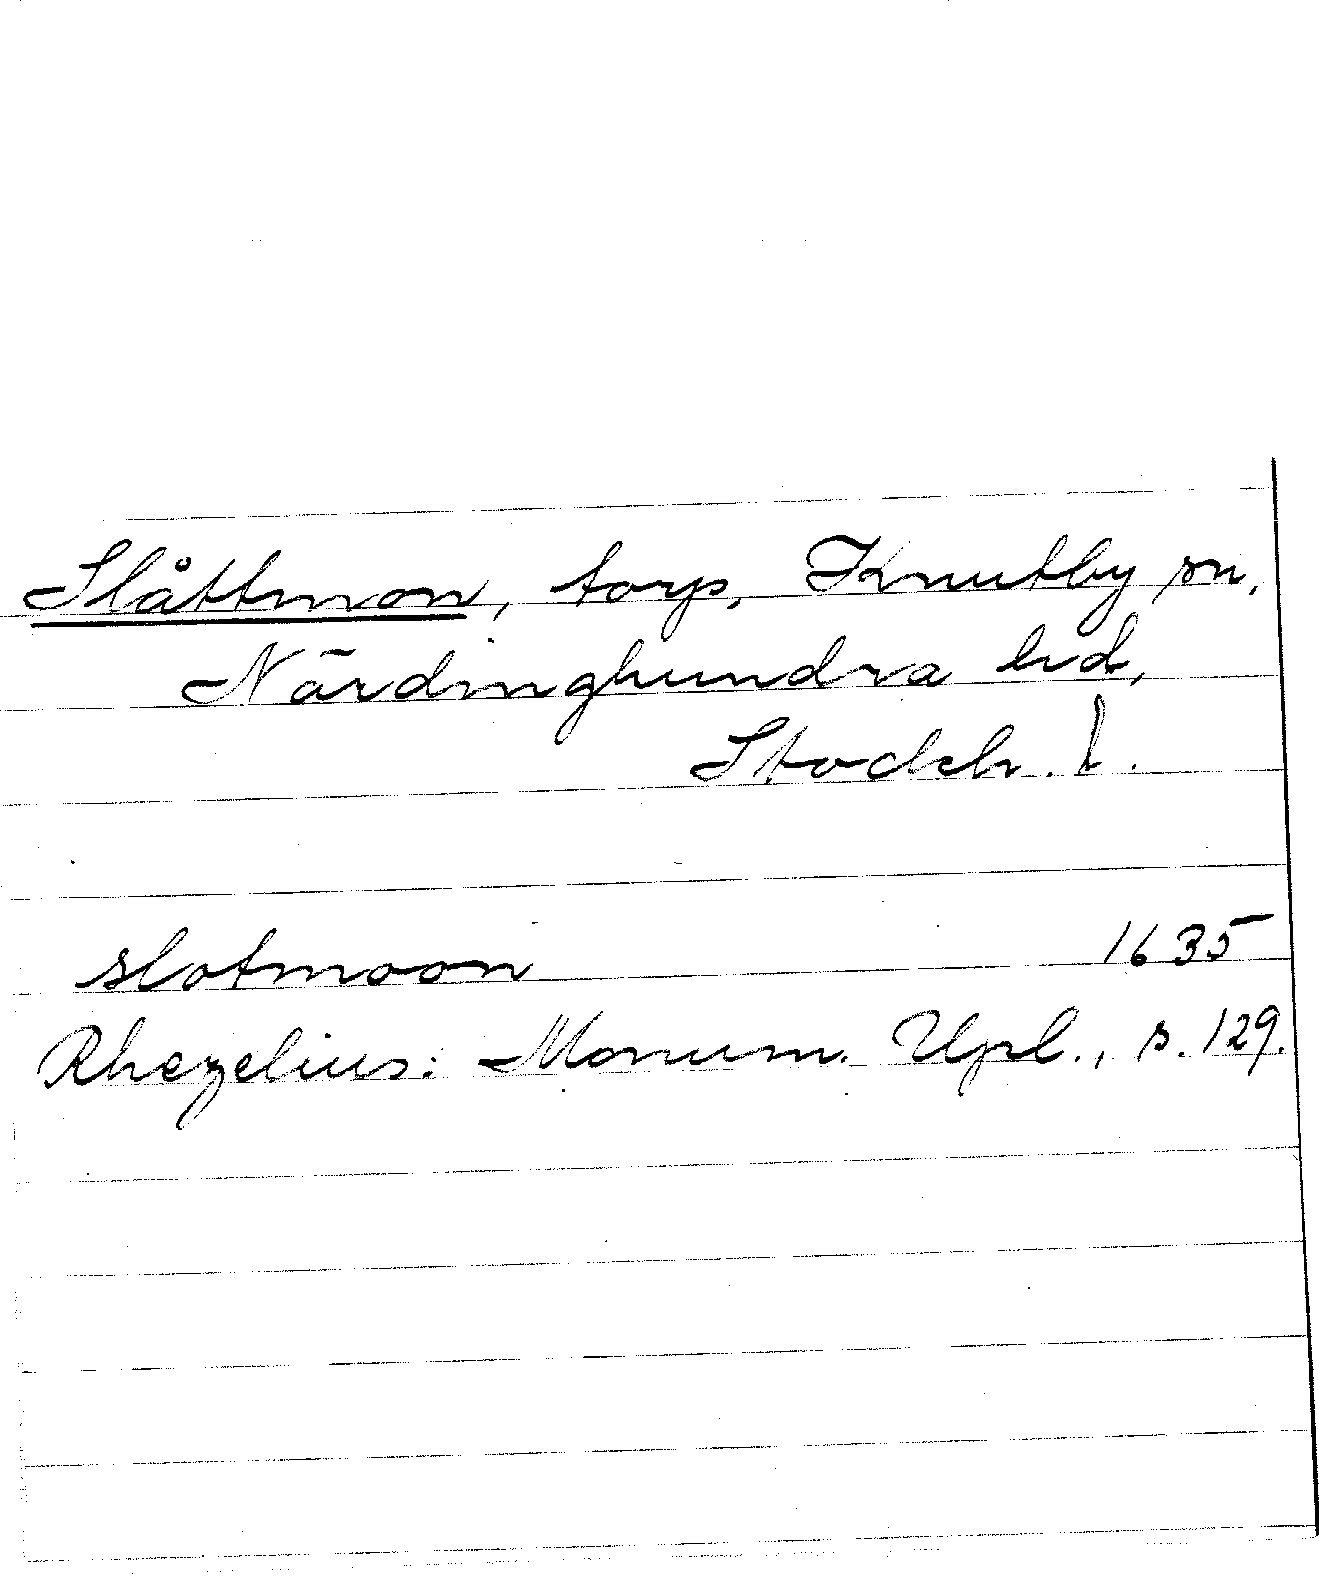 Slåttmon, torp, Knutby sn,
Närdinghundra hd,
Stockh. l.
slotmoon 1635
Rhezelius: Monum. Upl., s. 129.